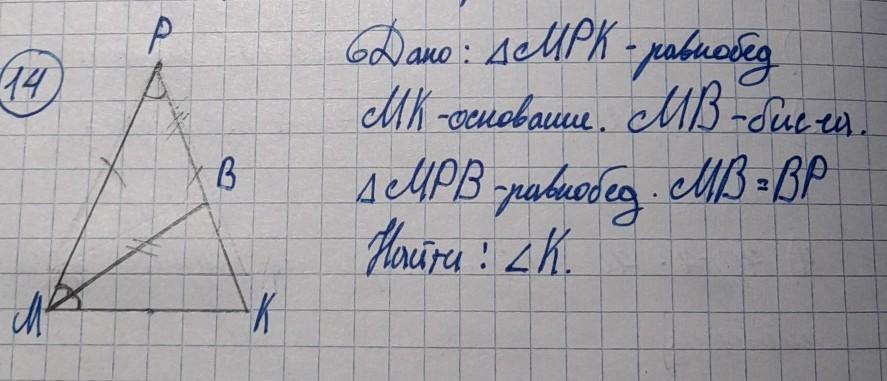 14
P
B
M
K
Дано: △MPK - равнобед
MK - основание. MB - бис-са.
△MPB - равнобед. MB = BP
Найти: ∠K.